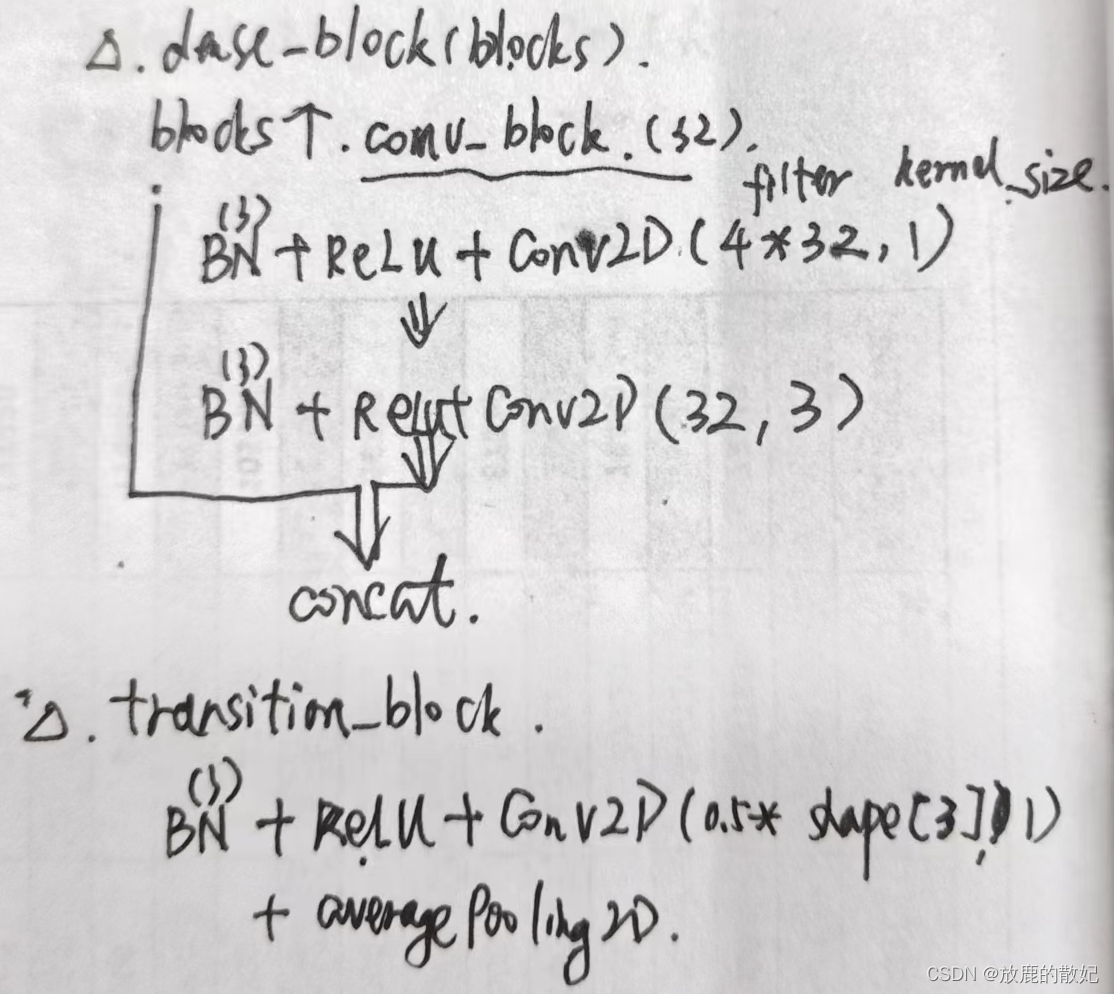 △. dense-block(blocks).
blocks↑. conv_block.(32).
filter kernel_size.
(3)
BN + ReLU + Conv2D(4*32,1)
⇓
(3)
BN + ReLU+ Conv2D(32,3)
⇓
concat.
△. transition_block.
(3)
BN + ReLU + Conv2D(0.5* shape[3],1)
+ averagePooling2D.
CSDN @放鹿的散妃